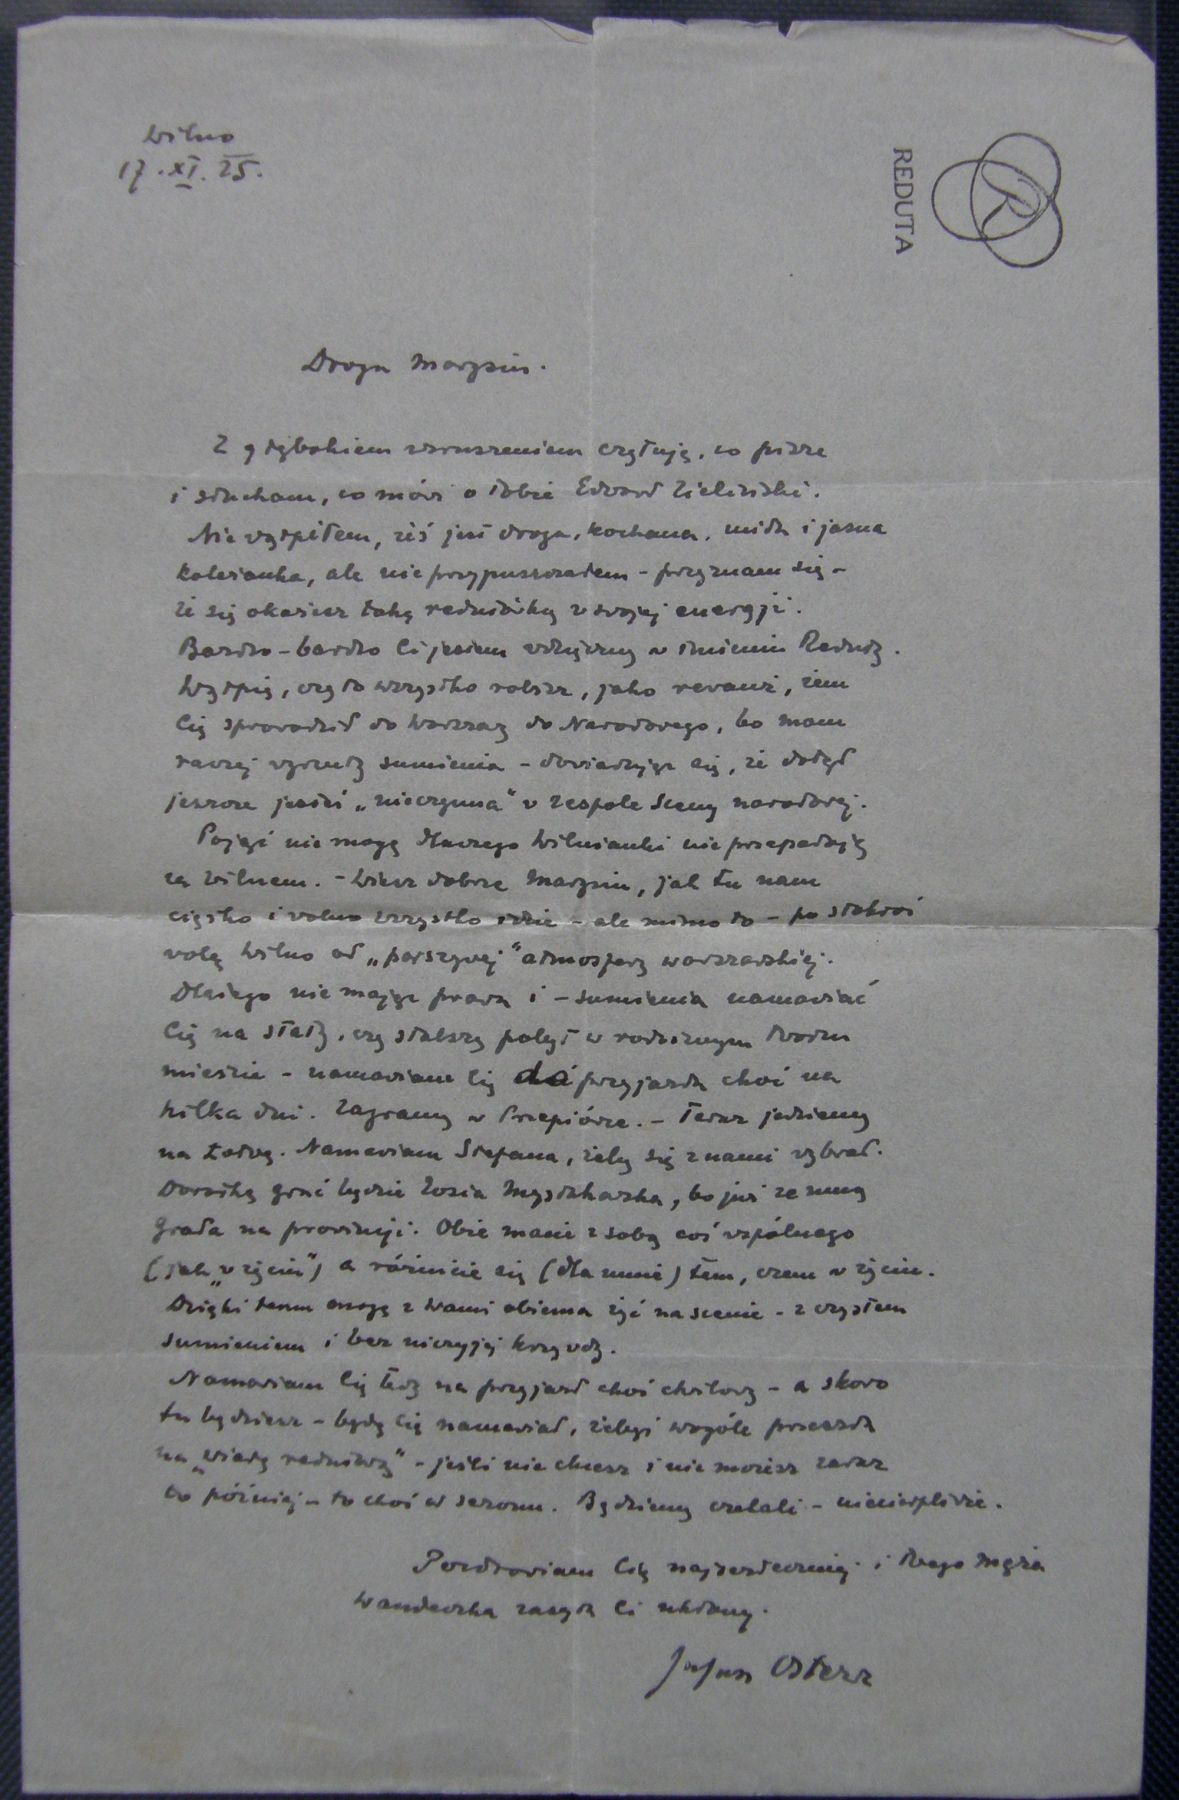 Wilno
17.XI.25.
REDUTA
Droga Marysiu.
Z głębokiem wzruszeniem czytuję, co pisze
i słucham, co mówi o Tobie Edward Zieliński.
Nie wątpiłem, żeś jest droga, kochana, miła i jasna
koleżanka, ale nie przypuszczałem – przyznam się –
że się okażesz taką redutówką w swojej energji.
Bardzo – bardzo Ci jestem wdzięczny w imieniu Reduty.
Wątpię, czy to wszystko robisz, jako rewanż, żem
Cię sprowadził do Warszawy do Narodowego, bo mam
raczej wyrzuty sumienia – dowiadując się, że dotąd
jeszcze jesteś „nieczynna” w zespole Sceny narodowej.
Pojąć nie mogę dlaczego Wilnianki nie przepadają
za Wilnem. – Wiesz dobrze Marysiu, jak tu nam
ciężko i wolno wszystko idzie – ale mimo to – po stokroć
wolę Wilno od „parszywej” atmosfery warszawskiej.
Dlatego nie mając prawa i – sumienia namawiać
Cię na stały, czy dłuższy pobyt w rodzinnym Twoim
mieście – namawiam Cię do przyjazdu choć na
kilka dni. Zagramy w Przepiórce. – Teraz jedziemy
na Łotwę. Namawiam Stefana, żeby się z nami wybrał.
Dorotkę grać będzie Zosia Myszkowska, bo już ze mną
grała na prowincji. Obie macie z sobą coś wspólnego
(jak „w życiu”) a różnicie się (dla mnie) tem, czem w życiu.
Dzięki temu mogę z Wami obiema żyć na scenie – z czystem
sumieniem i bez niczyjej krzywdy.
Namawiam Cię tedy na przyjazd choć chwilowy – a skoro
tu będziesz – będę Cię namawiał, żebyś wogóle przeszła
na „wiarę redutową” – jeśli nie chcesz i nie możesz zaraz
to później – to choć w sezonu. Będziemy czekali – niecierpliwie.
Pozdrawiam Cię najserdeczniej i Twego Męża
Wandeczka zasyła Ci ukłony.
Juljusz Osterwa